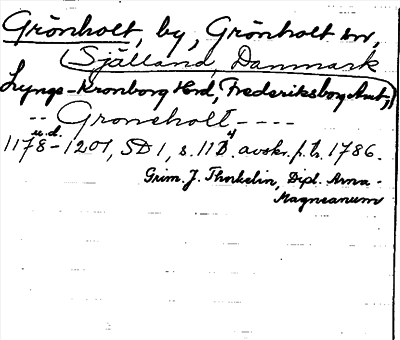 Grönholt, by, Grönholt sn,
(Själland, Danmark
Lynge-Kronborg Hrd, Frederiksborg Amt,)
-- Groneholt ----
u.d.
1178-1201, SD 1, s. 113. avskr. fr. 1786.
Grim. J. Thorkelin, Dipl. Arna-
Magnæanum